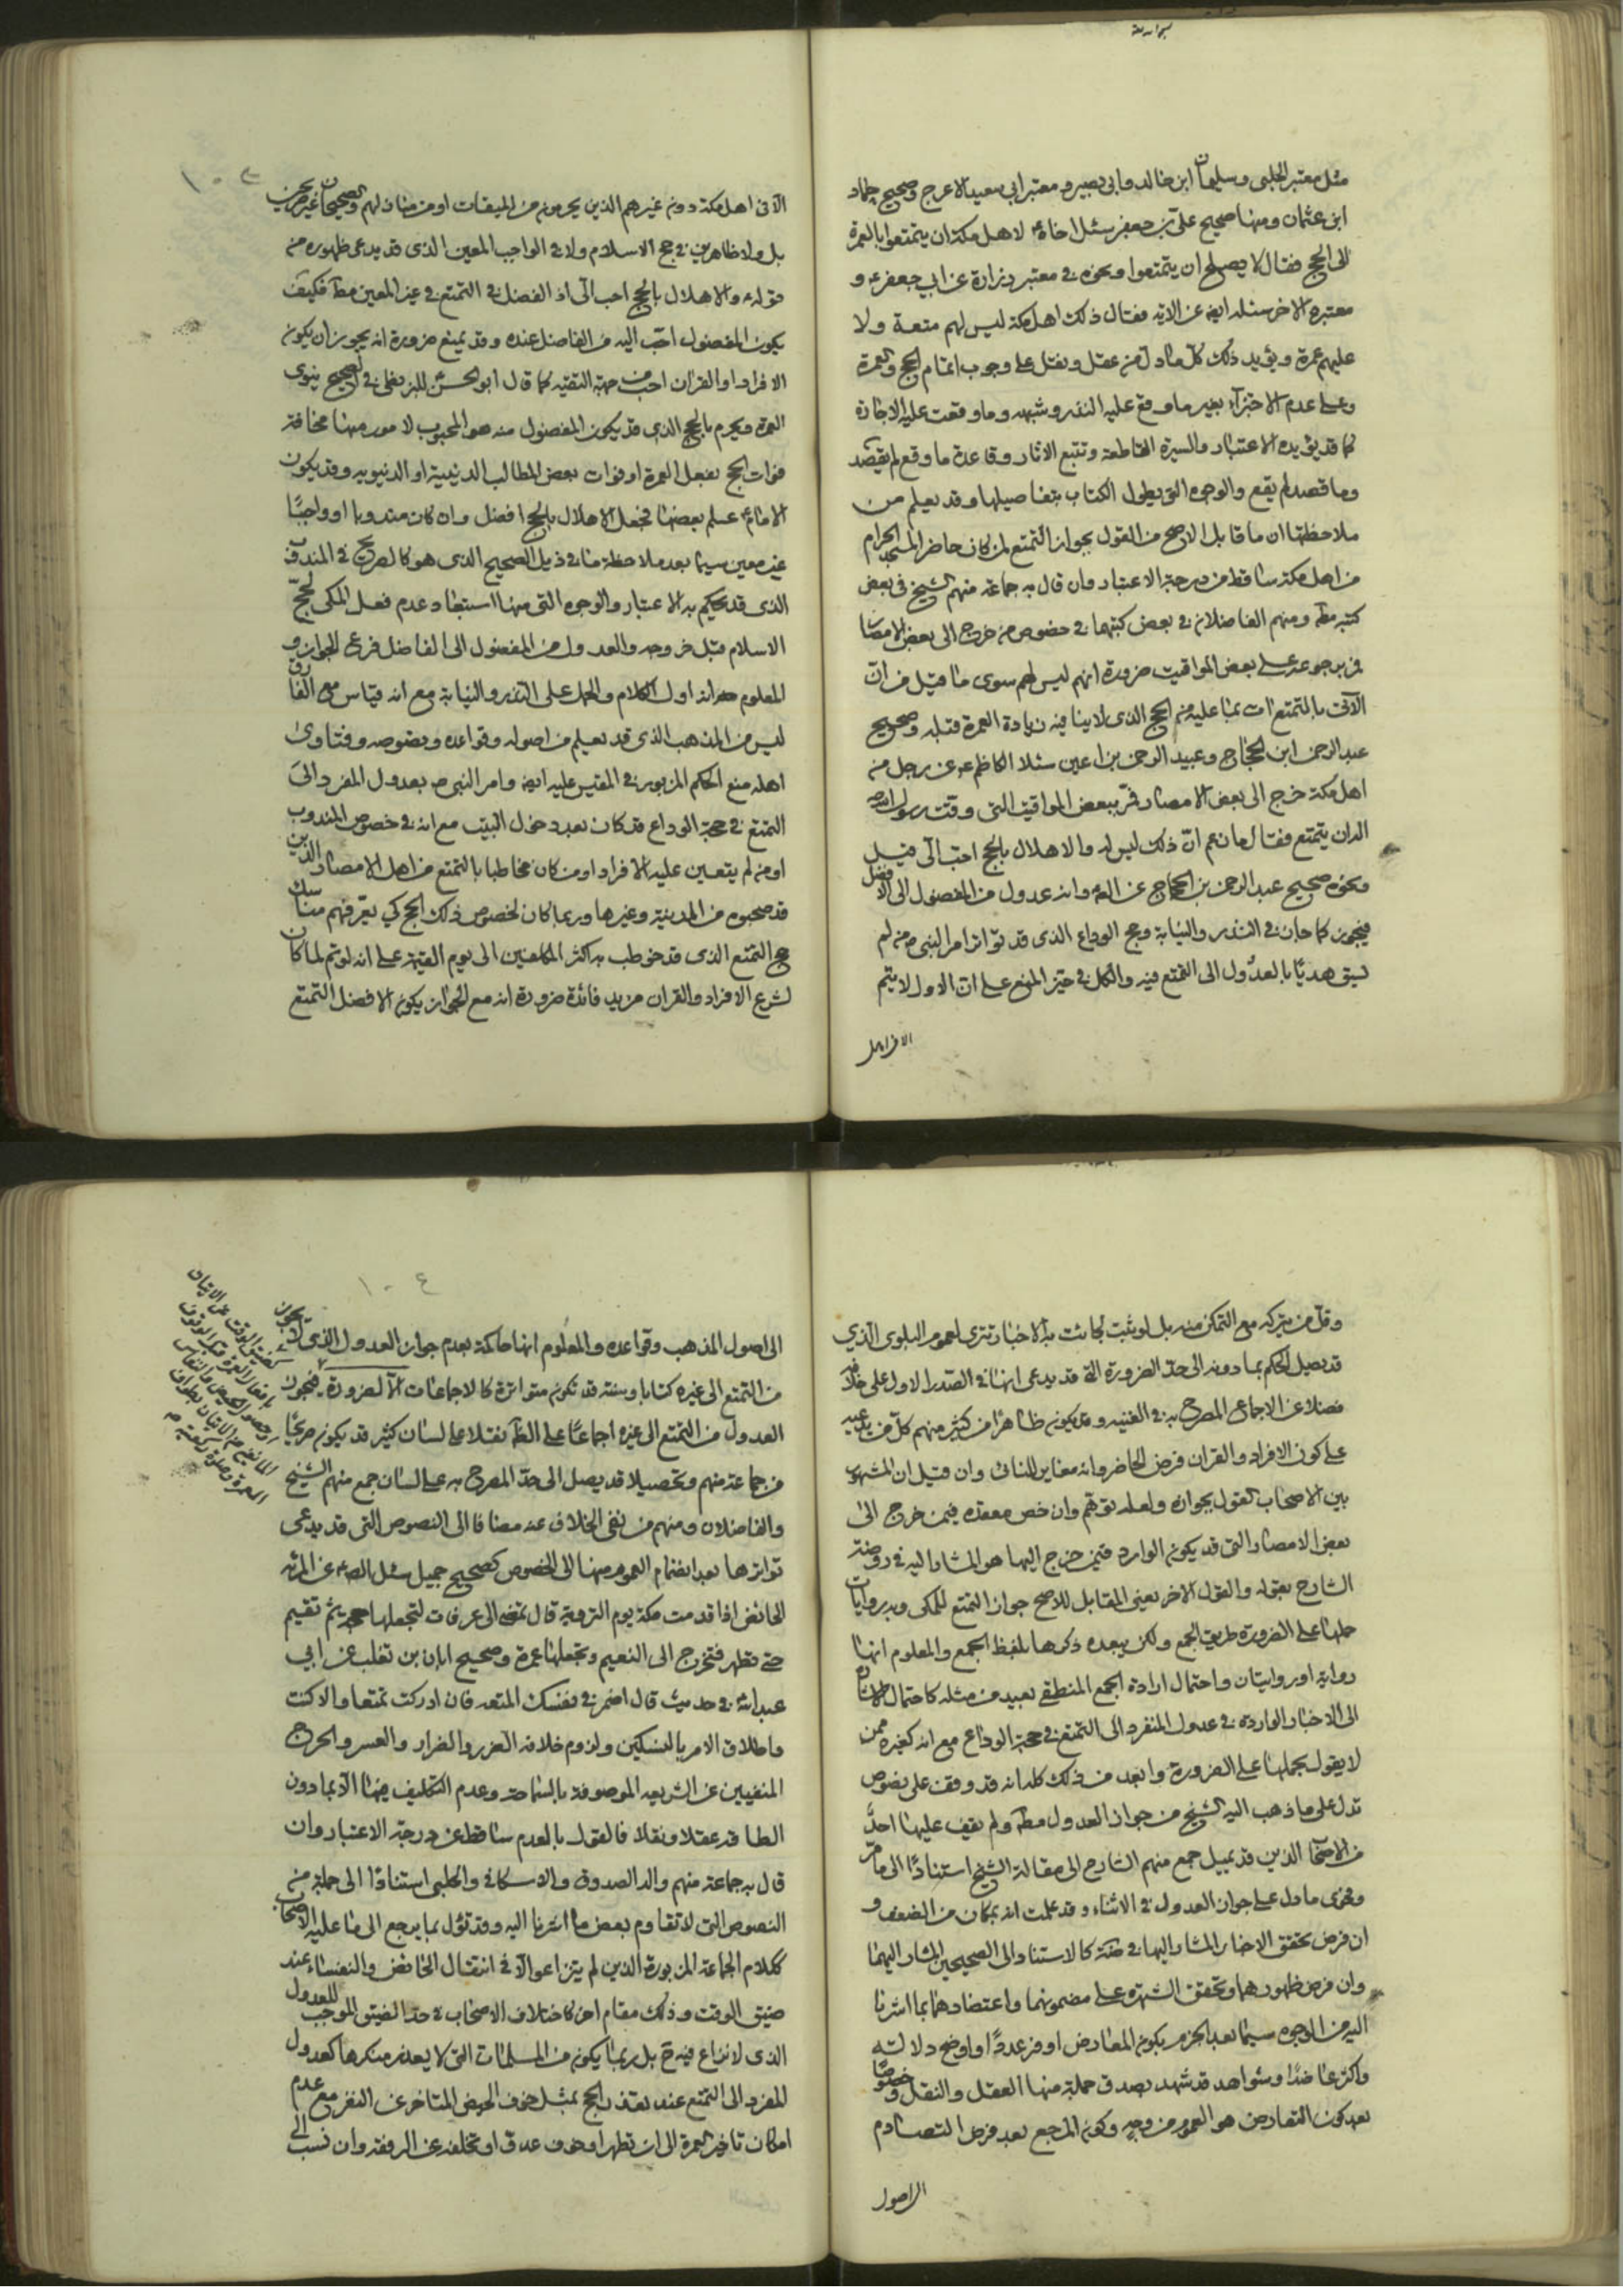 مثل معتبر الحلبي وسليمان ابن خالد وابي بصير ومعتبر ابي سعيد الاعرج وصحيح حماد
ابن عثمان ومنها صحيح علي بن جعفر سئل اخاه ع لاهل مكة ان يتمتعوا بالعمرة
الى الحج فقال لا يصلح ان يتمتعوا ونحوه في معتبر زرارة عن ابي جعفر ع و
معتبره الاخر سئله ايضا عن الاية فقال ذلك اهل مكة ليس لهم متعة ولا
عليهم عمرة ويؤيد ذلك كل ما دل من عقل ونقل على وجوب اتمام الحج والعمرة
وعلى عدم الاجتزاء بغير ما وقع عليه النذر وشبهه وما وقعت عليه الاجازة
كما قد يؤيده الاعتبار والسيرة القاطعة وتتبع الاثار وقاعدة ما وقع لم يقصد
وما قصد لم يقع والوجوه التي يطول الكتاب بتفاصيلها وقد يعلم من
ملاحظتها ان ما قابل الاصح من القول بجواز التمتع لمن كان حاضر المسجد الحرام
من اهل مكة ساقط من درجة الاعتبار وان قال به جماعة منهم الشيخ في بعض
كتبه مط ومنهم الفاضلان في بعض كتبهما في خصوص من خرج الى بعض الامصار
في رجوعه على بعض المواقيت ضرورة انهم ليس لهم سوى ما قيل من ان
الآتي بالتمتع ات بما عليه من الحج الذي لا ينافيه زيادة العمرة قبله وصحيح
عبد الرحمن ابن الحجاج وعبيد الرحمن بن اعين سئلا الكاظم ع عن رجل من
اهل مكة خرج الى بعض الامصار فمر ببعض المواقيت التي وقت رسول الله ص
اله ان يتمتع فقال ما زعم ان ذلك ليس له والاهلال بالحج احب الي قيل
ونحوه صحيح عبد الرحمن بن الحجاج عن الصه وانه عدول من المفضول الى الافضل
فيجوز كما جاز في النذر والنيابة وحج الوداع الذي قد تواتر امر النبي ص من لم
يسق هديا بالعدول الى التمتع فيه والكل في حيز المنع على ان الاول لا يتم
الآتى اهل مكة دون غيرهم الذين يحرمون من الميقات او من منازلهم والصحيحان غير صريحين
بل ولا ظاهرين في حج الاسلام ولا في الواجب المعين الذي قد يدعى ظهوره من
قوله ع والاهلال بالحج احب الي اذ الفضل في التمتع في غير المعين مط فكيف
يكون المفضول احب اليه من الفاضل عنده وقد يمنع ضرورة انه يجوز ان يكون
الافراد او القران احب من جهة التقية كما قال ابو الحسن ع للبزنطي في الصحيح ينوي
العمرة ويحرم بالحج الذي قد يكون المفضول منه هو المحبوب لامور منها مخافة
فوات الحج بفعل العمرة او فوات بعض المطالب الدينية او الدنيوية وقد يكون
الامام ع علم بعضها فجعل الاهلال بالحج افضل وان كان مندوبا او واجبا
غير معين سيما بعد ملاحظة ما في ذيل الصحيح الذي هو كالصريح في المندوب
الذي قد يحكم به الاعتبار والوجوه التي منها استبعاد عدم فعل المكي لحج
الاسلام قبل خروجه والعدول من المفضول الى الفاضل فرع الجواز و
المعلوم حد انه اول الكلام والحمل على النذر والنيابة مع انه قياس مع الفارق
ليس من المذهب الذي قد يعلم من اصوله وقواعده ونصوصه وفتاوى
اهله منع الحكم المزبور في المقيس عليه ايضا وامر النبي ص بعدول المفرد الى
التمتع في حجة الوداع قد كان بعد دخول البيت مع انه في خصوص المندوب
او من لم يتعين عليه الافراد او من كان مخاطبا بالتمتع من اهل الامصار الذين
قد صحبوه من المدينة وغيرها وربما كان لخصوص ذلك الحج كي يعرفهم مناسك
حج التمتع الذي قد خوطب به اكثر المكلفين الى يوم القيمة على انه لو تم لما كان
لشرع الافراد والقران مزيد فائدة ضرورة انه مع الجواز يكون الافضل التمتع
وقل من يتركه مع التمكن منه بل لو ثبت لجائت به الاخبار تترى لعموم البلوى الذي
قد يصل الحكم بما دونه الى حد الضرورة التي قد يدعى انها في الصدر الاول على خلافه
فضلا عن الاجماع المصرح به في الغنية وقد يكون ظاهرا من كثير منهم كل من
على كون الافراد والقران فرض الحاضر وانه مغاير للنائي وان قيل ان المشهور
بين الاصحاب القول بجوازه ولعله توهم وان خص معقده فيمن خرج الى
بعض الامصار التي قد يكون الوارد فيمن خرج اليها هو المشار اليه في روضة
الشارح بقوله والقول الاخر يعني المقابل للاصح جواز التمتع للمكي وبه روايات
حملها على الضرورة طريق الجمع ولكن يبعده ذكرها بلفظ الجمع والمعلوم انها
رواية او روايتان واحتمال ارادة الجمع المنطقي بعيد من مثله كاحتمال الاشارة
الى الاخبار الواردة في عدول المنفرد الى التمتع في حجة الوداع مع انه كغيره ممن
لا يقول بحملها على الضرورة وابعد من ذلك كله انه قد وقف على نصوص
تدل على ما ذهب اليه الشيخ من جواز العدول مط ولم يقف عليها احد
من الاصحاب الذين قد يميل جمع منهم الشارح الى مقالة الشيخ استنادا الى ما مر
وفحوى ما دل على جواز العدول في الاثناء وقد علمت انه بمكان من الضعف و
ان فرض تحقق الاخبار المشار اليها في كالاستناد الى الصحيحين المشار اليهما
وان فرض ظهورهما وتحقق الشهرة على مضمونهما واعتضادهما بما اشرنا
اليه من الوجوه سيما بعد الجزم بكون المعارض اوفر عددا واوضح دلالة
واكثر عاضدا وشواهد قد شهد بصدق جملة منها العقل والنقل وخصوصا
بعد كون التعارض هو العموم من وجه وكون المرجع بعد فرض التصادم
الى اصول
الى اصول المذهب وقواعده والمعلوم انها حاكمة بعدم جواز العدول الذي لا يجوز
من التمتع الى غيره كتابا وسنة قد تكون متواترة كالاجماعات الا لضرورة فيجوز
العدول من التمتع الى غيره اجماعا على الظ نقلا على لسان كثير قد يكون صريحا
من جماعة منهم وتحصيلا قد يصل الى حد المصرح به على لسان جمع منهم الشيخ
والفاضلان ومنهم من نفى الخلاف عنه مضافا الى النصوص التي قد يدعى
تواترها بعد انضمام العموم منها الى الخصوص كصحيح جميل سئل الصه عن المرئة
الحائض اذا قدمت مكة يوم التروية قال تمضي الى عرفات لتجعلها حجة ثم تقيم
حتى تطهر فتخرج الى التنعيم وتجعلها عمرة وصحيح ابان بن تغلب عن ابي
عبد الله ع في حديث قال اضمر في نفسك المتعة فان ادركت تمتعا والا كنت
واطلاق الامر بالنسكين ولزوم خلافه الضرر والضرار والعسر والحرج
المنفيين عن الشريعة الموصوفة بالسماحة وعدم التكليف فيها الا بما دون
الطاقة عقلا ونقلا فالقول بالعدم ساقط عن درجة الاعتبار وان
قال به جماعة منهم والد الصدوق والاسكافي والحلبي استنادا الى جملة من
النصوص التي لا تقاوم بعض ما اشرنا اليه وقد تؤول بما يرجع الى ما عليه الاصحاب
ككلام الجماعة المزبورة الذين لم يتنازعوا الا في انتقال الحائض والنفساء عند
ضيق الوقت وذلك مقام اخر كاختلاف الاصحاب في حد الضيق الموجب للعدول
الذي لا نزاع فيه ح بل ربما يكون من المسلمات التي لا يعذر منكرها كعدول
المفرد الى التمتع عند تعذر الحج بمثل خوف الحيض المتاخر عن النفر مع عدم
امكان تاخير العمرة الى ان تطهر او خوف عدو او تخلفه عن الرفقة وان نسب الى